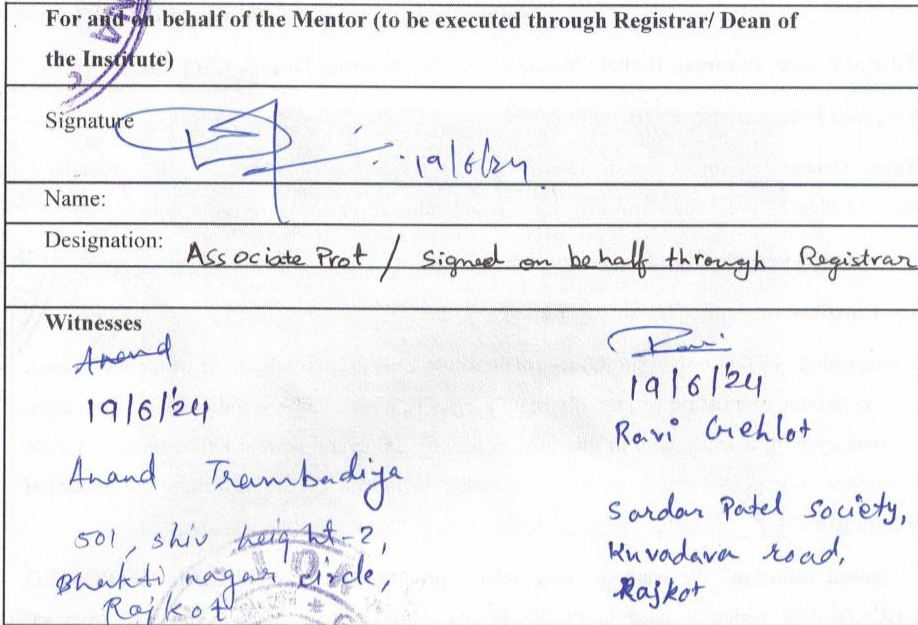 For and on behalf of the Mentor (to be executed through Registrar/ Dean of
the Institute)
Signature
19/6/24
Name:
Designation: Associate Prof / Signed on behalf through Registrar
Witnesses
Anand
19/6/24
Anand Trambadiya
501, shiv height-2,
Bhakti nagar circle,
Rajkot
Ravi
19/6/24
Ravi Gehlot
Sardar Patel Society,
Kuvadava road,
Rajkot